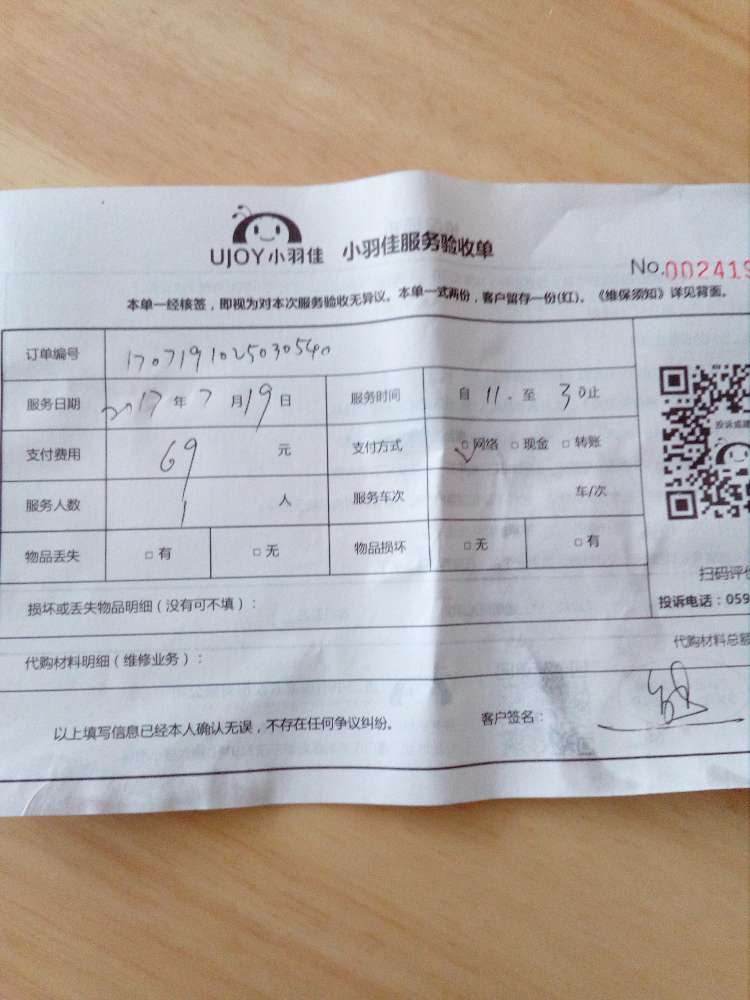 UJOY小羽佳 小羽佳服务验收单
No.002419
本单一经核签，即视为对本次服务验收无异议。本单一式两份，客户留存一份(红)。《维保须知》详见背面。
订单编号 1707191025030540
服务日期 2017年7月19日 服务时间 自 11. 至 30止
支付费用 69 元 支付方式 ☑网络 □现金 □转账
服务人数 1 人 服务车次 车/次
物品丢失 □有 □无 物品损坏 □无 □有
扫码评价
损坏或丢失物品明细（没有可不填）：
投诉电话：059
代购材料明细（维修业务）：
代购材料总额
以上填写信息已经本人确认无误，不存在任何争议纠纷。 客户签名：